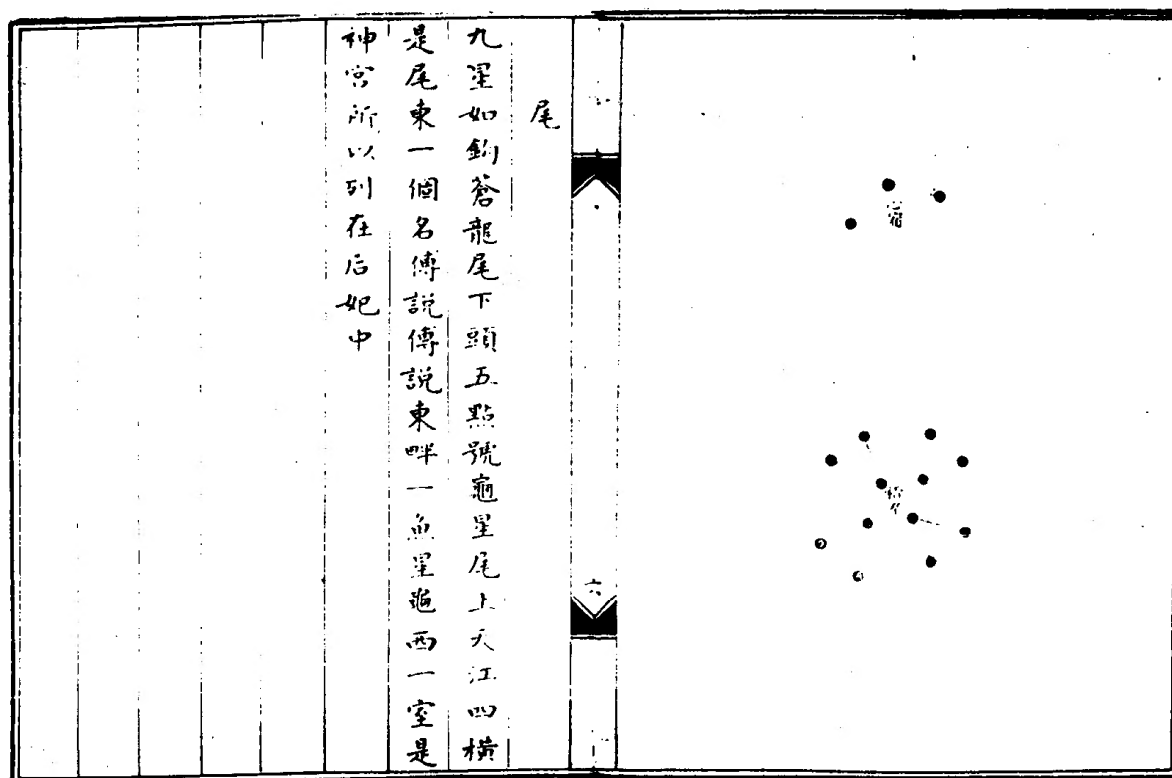 心宿
積卒
六
尾
九星如鈎蒼龍尾下頭五點號龜星尾上天江四橫
是尾東一個名傅説傅説東畔一魚星龜西一室是
神宮所以列在后妃中